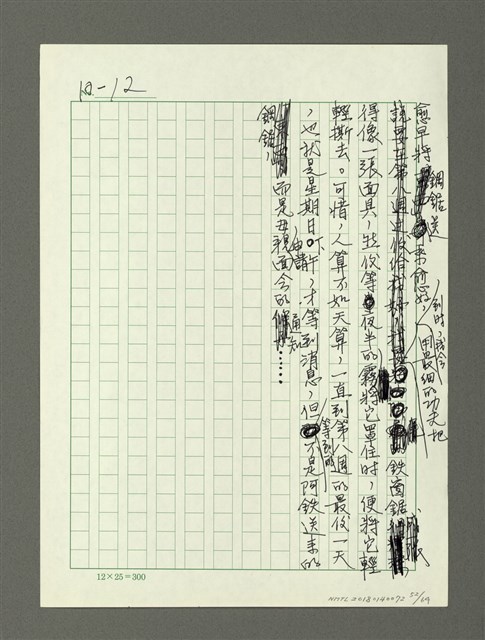 12-12
愈早將鋼鋸送來愈好，到時，我會用最細的功夫把
鐵窗鋸成
得像一張面具，然後等夜半的霧將它罩住時，便將它輕
輕撕去。可惜，人算不如天算，一直到第八週的最後一天
，也就是星期日下午，才等到消息，但等到的不是阿鐵送來的
鋼鋸，而是母親申請面會的通知……
12×25=300
NMTL20180140072 22/69